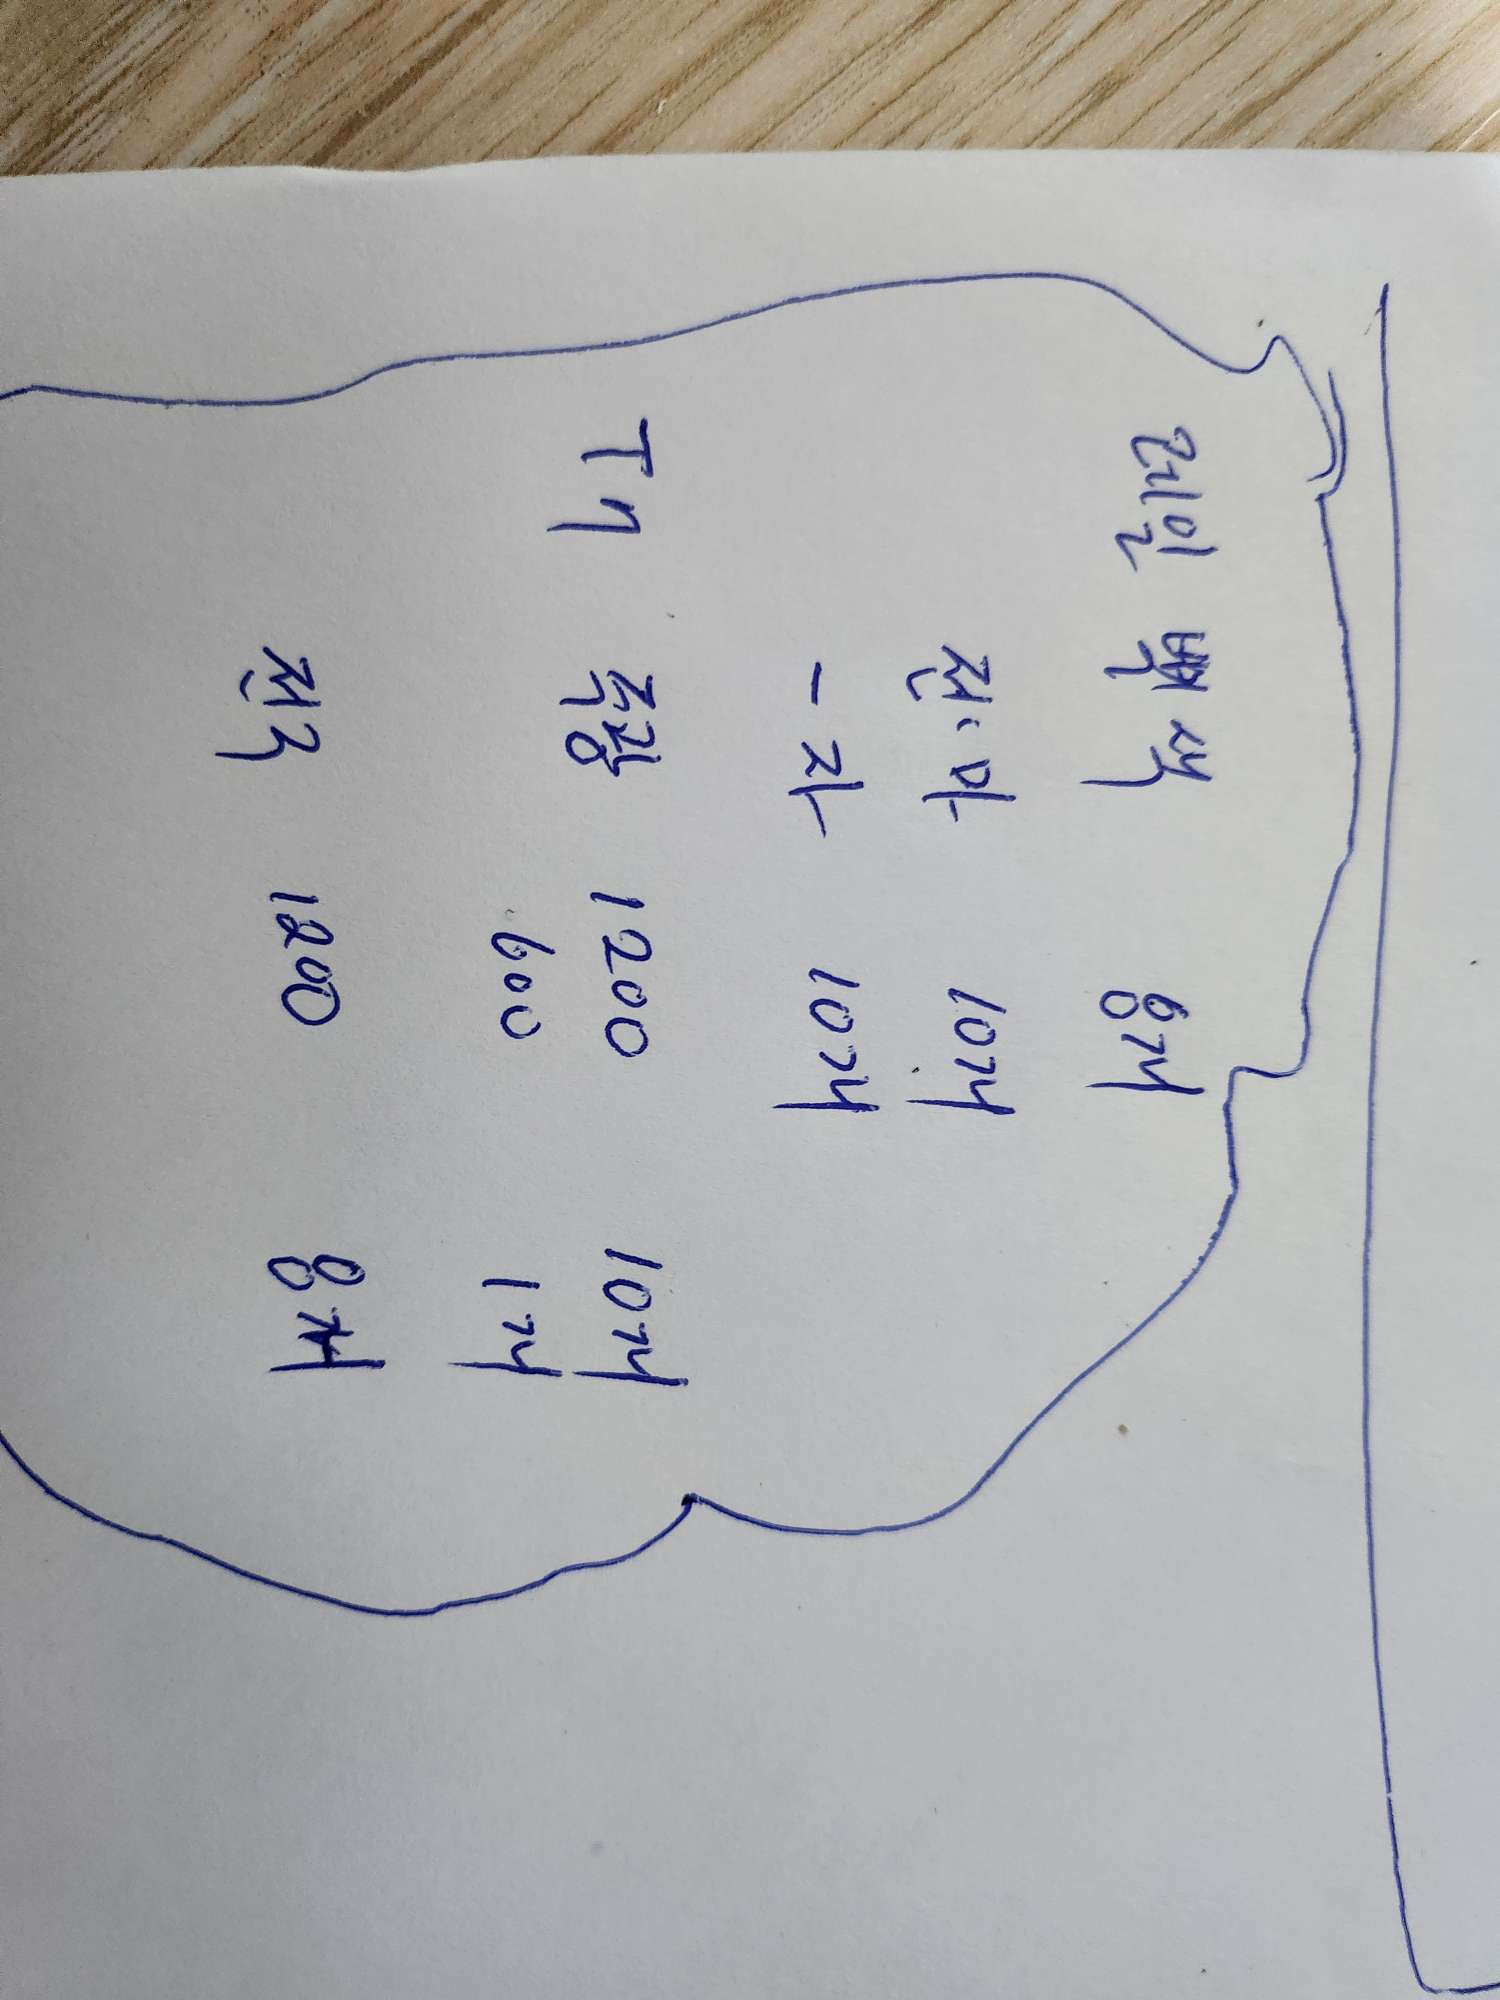 레일 백색 8개
전·마 10개
-자 10개
T5 주광 1200 10개
600 1개
전구 1200 8개